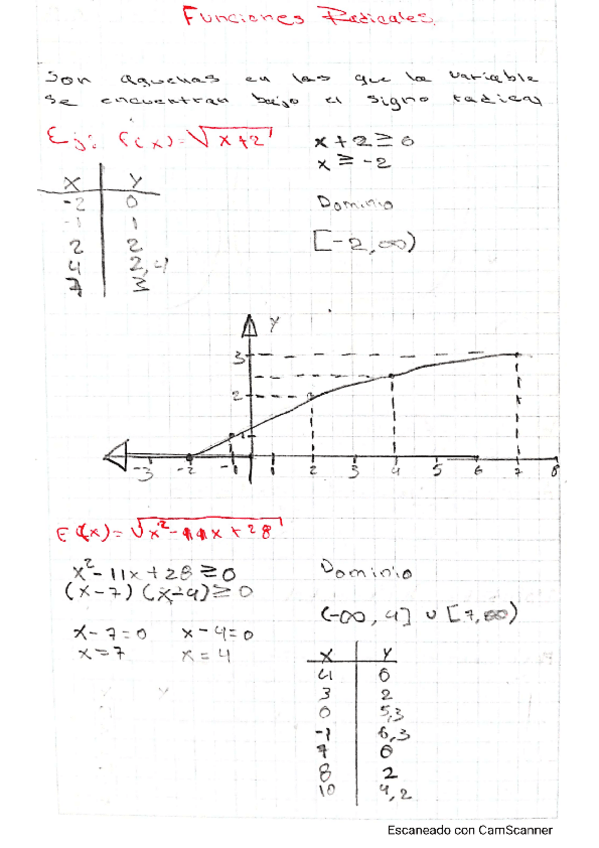 Funciones Radicales
Son aquellas en las que la variable
se encuentran bajo el signo radical
Ej: f(x)=√x+2
x+2≥0
x≥-2
X Y
-2 0
-1 1
2 2
4 2,4
7 3
Dominio
[-2,∞)
Y
3
2
1
-3 -2 -1 1 2 3 4 5 6 7 8
F(x)=√x²-11x+28
x²-11x+28≥0
(x-7)(x-4)≥0
x-7=0 x-4=0
x=7 x=4
Dominio
(-∞,4] ∪ [7,∞)
X Y
4 0
3 2
0 5,3
-1 6,3
7 0
8 2
10 4,2
Escaneado con CamScanner